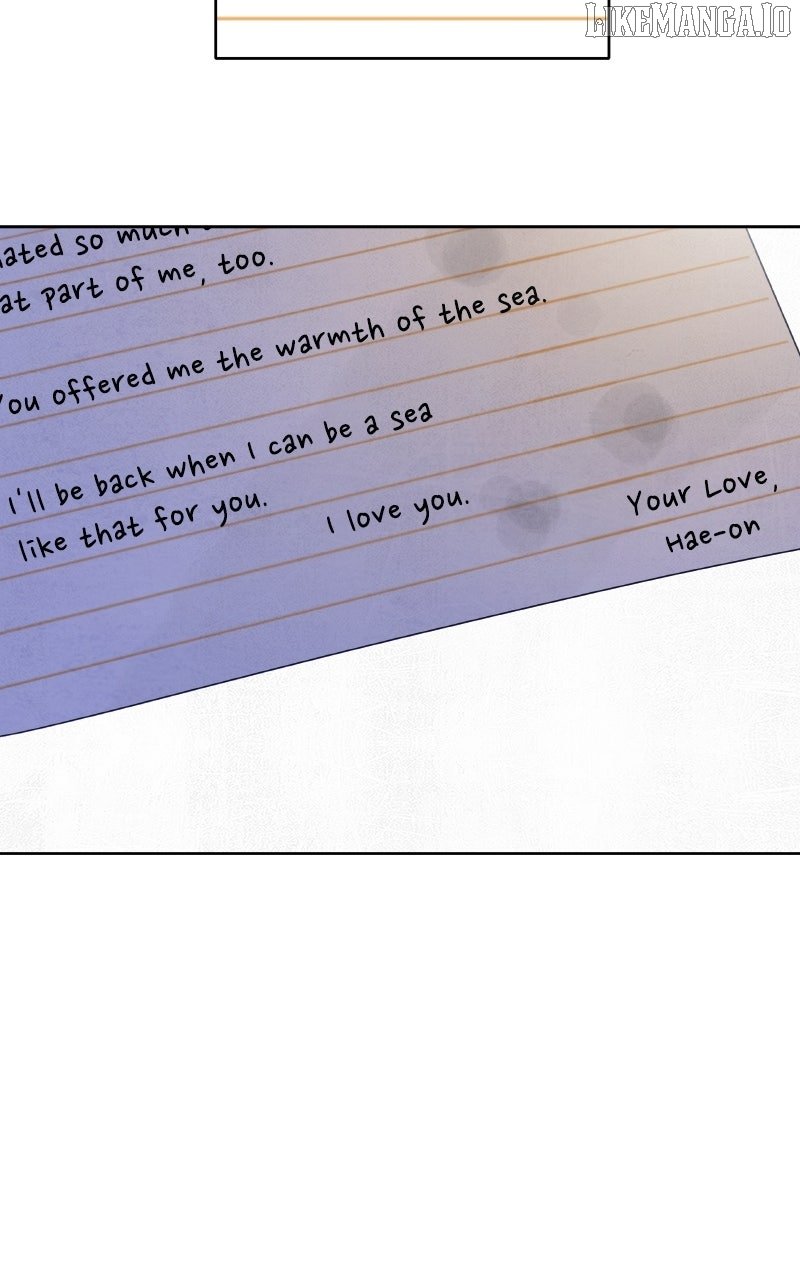 LikeManga.io
so much
at part of me, too.
You offered me the warmth of the sea.
I'll be back when I can be a sea
like that for you.
I love you.
Your Love,
Hae-on